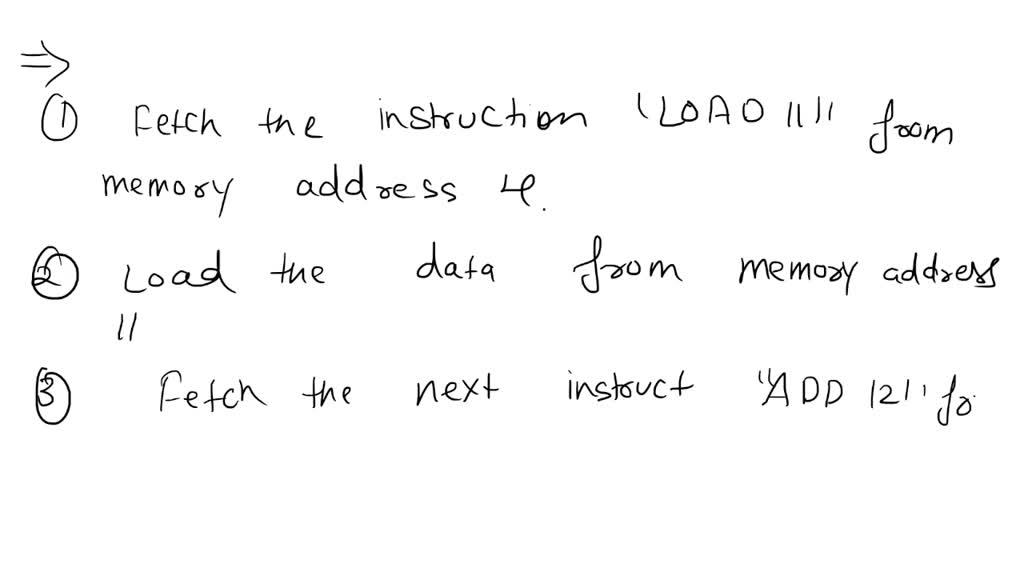 ⇒
① Fetch the instruction "LOAD 11" from
memory address 4.
② Load the data from memory address
11
③ Fetch the next instruct "ADD 12" fo